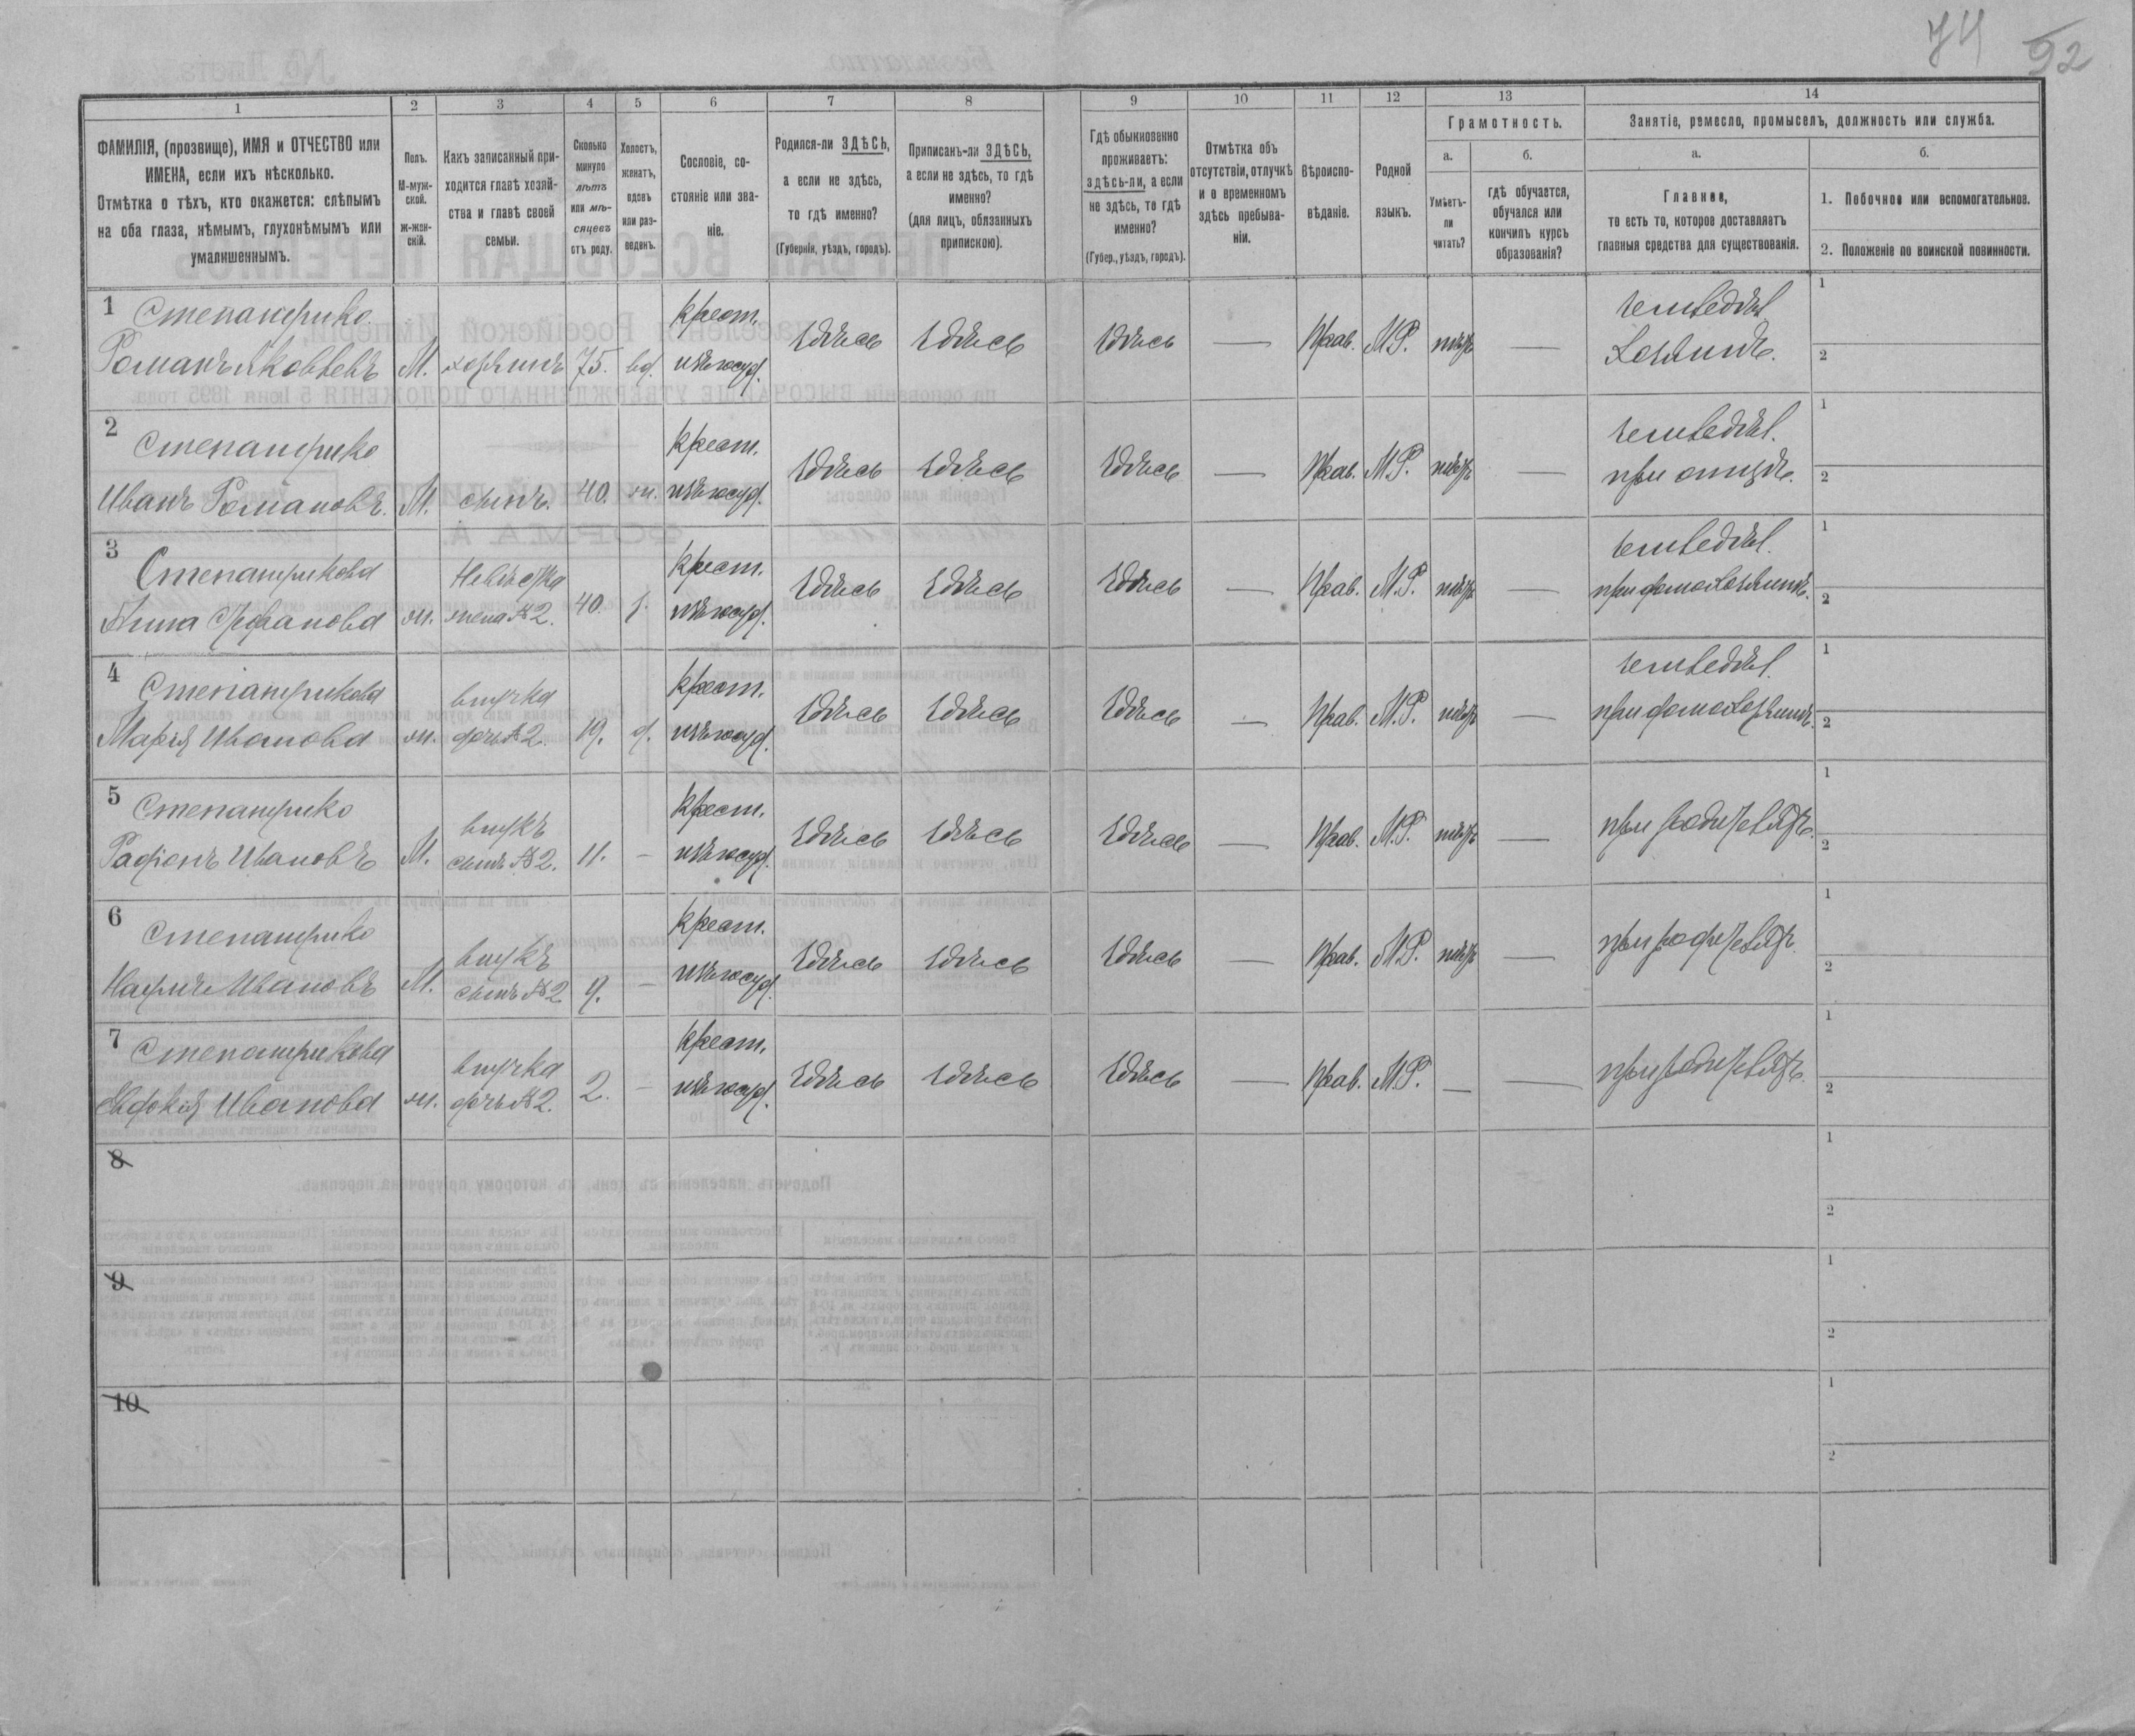 74 92
1 2 3 4 5 6 7 8 9 10 11 12 13 14
ФАМИЛІЯ, (прозвище), ИМЯ и ОТЧЕСТВО или
ИМЕНА, если ихъ нѣсколько.
Отмѣтка о тѣхъ, кто окажется: слѣпымъ
на оба глаза, нѣмымъ, глухонѣмымъ или
умалишеннымъ.
Полъ.
М-муж-
ской.
Ж-жен-
скій.
Какъ записанный при-
ходится главѣ хозяй-
ства и главѣ своей
семьи.
Сколько
минуло
лѣтъ
или мѣ-
сяцевъ
отъ роду.
Холостъ,
женатъ,
вдовъ
или раз-
веденъ.
Сословіе, со-
стояніе или зва-
ніе.
Родился-ли ЗДѢСЬ,
а если не здѣсь,
то гдѣ именно?
(Губернія, уѣздъ, городъ).
Приписанъ-ли ЗДѢСЬ,
а если не здѣсь, то гдѣ
именно?
(для лицъ, обязанныхъ
припискою).
Гдѣ обыкновенно
проживаетъ:
здѣсь-ли, а если
не здѣсь, то гдѣ
именно?
(Губер., уѣздъ, городъ).
Отмѣтка объ
отсутствіи, отлучкѣ
и о временномъ
здѣсь пребыва-
ніи.
Вѣроиспо-
вѣданіе.
Родной
языкъ.
Грамотность.
а.
Умѣетъ-
ли
читать?
б.
гдѣ обучается,
обучался или
кончилъ курсъ
образованія?
Занятіе, ремесло, промыселъ, должность или служба.
а.
Главное,
то есть то, которое доставляетъ
главныя средства для существованія.
б.
1. Побочное или вспомогательное.
2. Положеніе по воинской повинности.
1 Степанцрико
Романъ Яковлевъ М. хозяинъ 75. вд. крест. изъ госуд. здѣсь здѣсь здѣсь — Прав. М.Р. нѣтъ — земледѣл. хозяинъ. 1 2
2
Иванъ Романовъ. М. сынъ. 40. ж. крест. изъ госуд. здѣсь здѣсь здѣсь — Прав. М.Р. нѣтъ — земледѣл. при отцѣ. 1 2
3
Анна ж. Невѣстка жена №2. 40. з. крест. изъ госуд. здѣсь здѣсь здѣсь — Прав. М.Р. нѣтъ — земледѣл. при домохозяинѣ. 1 2
4
Марія Иванова ж. внучка дочь №2. 19. д. крест. изъ госуд. здѣсь здѣсь здѣсь — Прав. М.Р. нѣтъ — земледѣл. при домохозяинѣ. 1 2
5
Ивановъ М. внукъ сынъ №2. 11. — крест. изъ госуд. здѣсь здѣсь здѣсь — Прав. М.Р. нѣтъ — при родителяхъ. 1 2
6
Ивановъ М. внукъ сынъ №2 9. — крест. изъ госуд. здѣсь здѣсь здѣсь — Прав. М.Р. нѣтъ — при родителяхъ. 1 2
7
Евдокія Иванова ж. внучка дочь №2. 2. — крест. изъ госуд. здѣсь здѣсь здѣсь — Прав. М.Р. — — при родителяхъ. 1 2
8 1 2
9 1 2
10 1 2